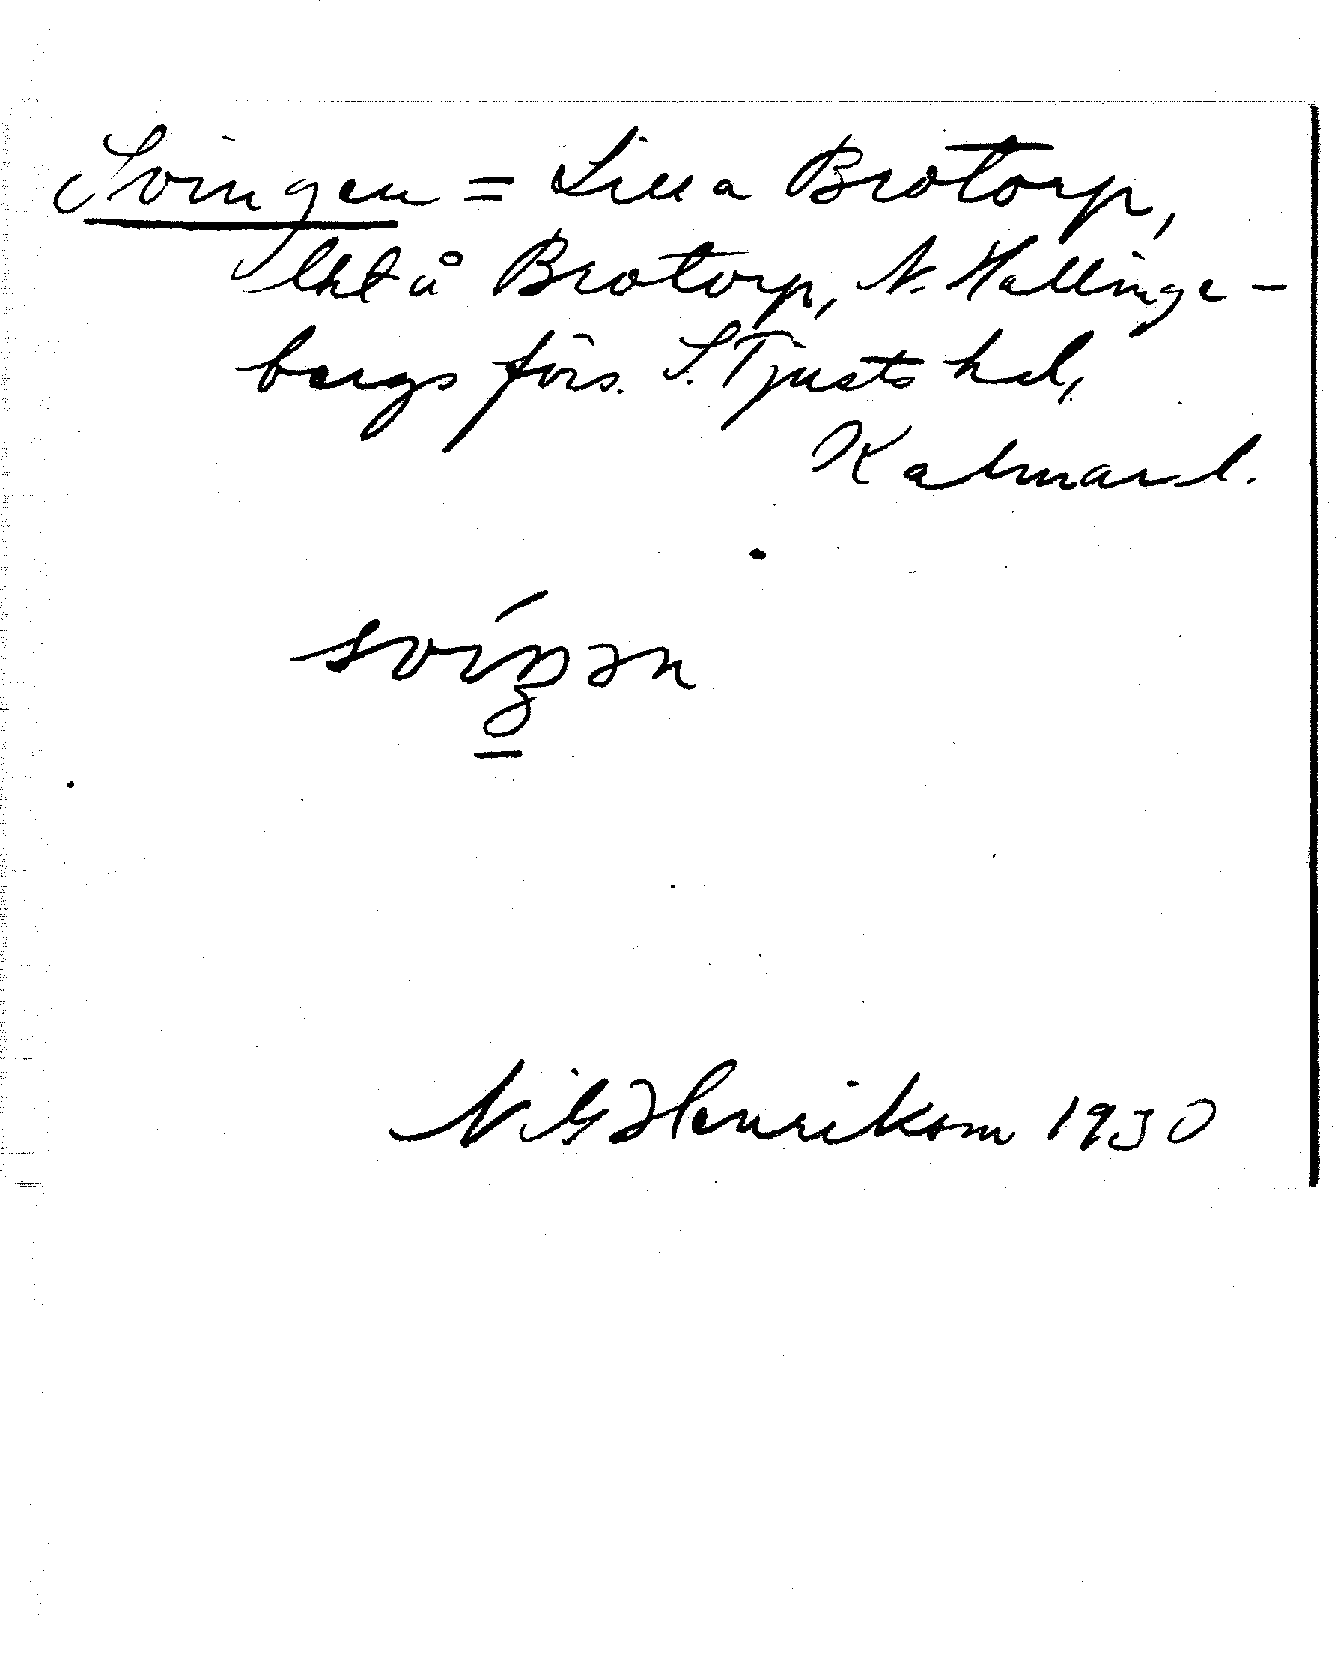 Svingen = Lilla Brotorp,
lht å Brotorp, N. Hallinge-
bergs förs. S. Tjusts hd,
Kalmar l.
svíŋən
N. G. Henrikson 1930